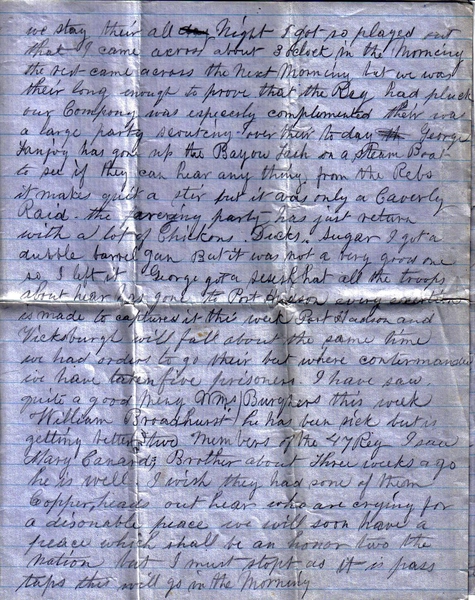 we stay their all Night I got so played out
that I came across about 3 oclock in the Morning
the rest came across the Next Morning but we was
their long enough to prove that the Reg had pluck
our Company was especerly complemented their was
a large party scouteny over their to day George
Lanjoy has gone up the Bayou Lach on a Steam Boat
to see if they can hear any thing from the Rebs
it makes quit a stir but it was only a Caverly
Raid. the party has just return
with a lot of Chickens. Ducks. Sugar I got a
dubble barrel gun But it was not a very good one
so I left it George got a sesesh hat all the troops
about hear has gone to Port Hudson every exertion
is made to capture it this week Port Hudson and
Vicksburgh will fall about the same time
we had orders to go their but where contermanded
we have taken five prisoners I have saw
quite a good meny Wms Burghers this week
"William Broadhurst" he has been sick but is
getting better two Members of the 47 Reg I saw
Mary Canards Brother about Three weeks ago
he is well I wish they had some of them
Copper, heads out hear who are crying for
a disonable peace we will soon have a
peace which shall be an honor two the
Nation but I must stopt as it is pass
taps this will go in the Morning